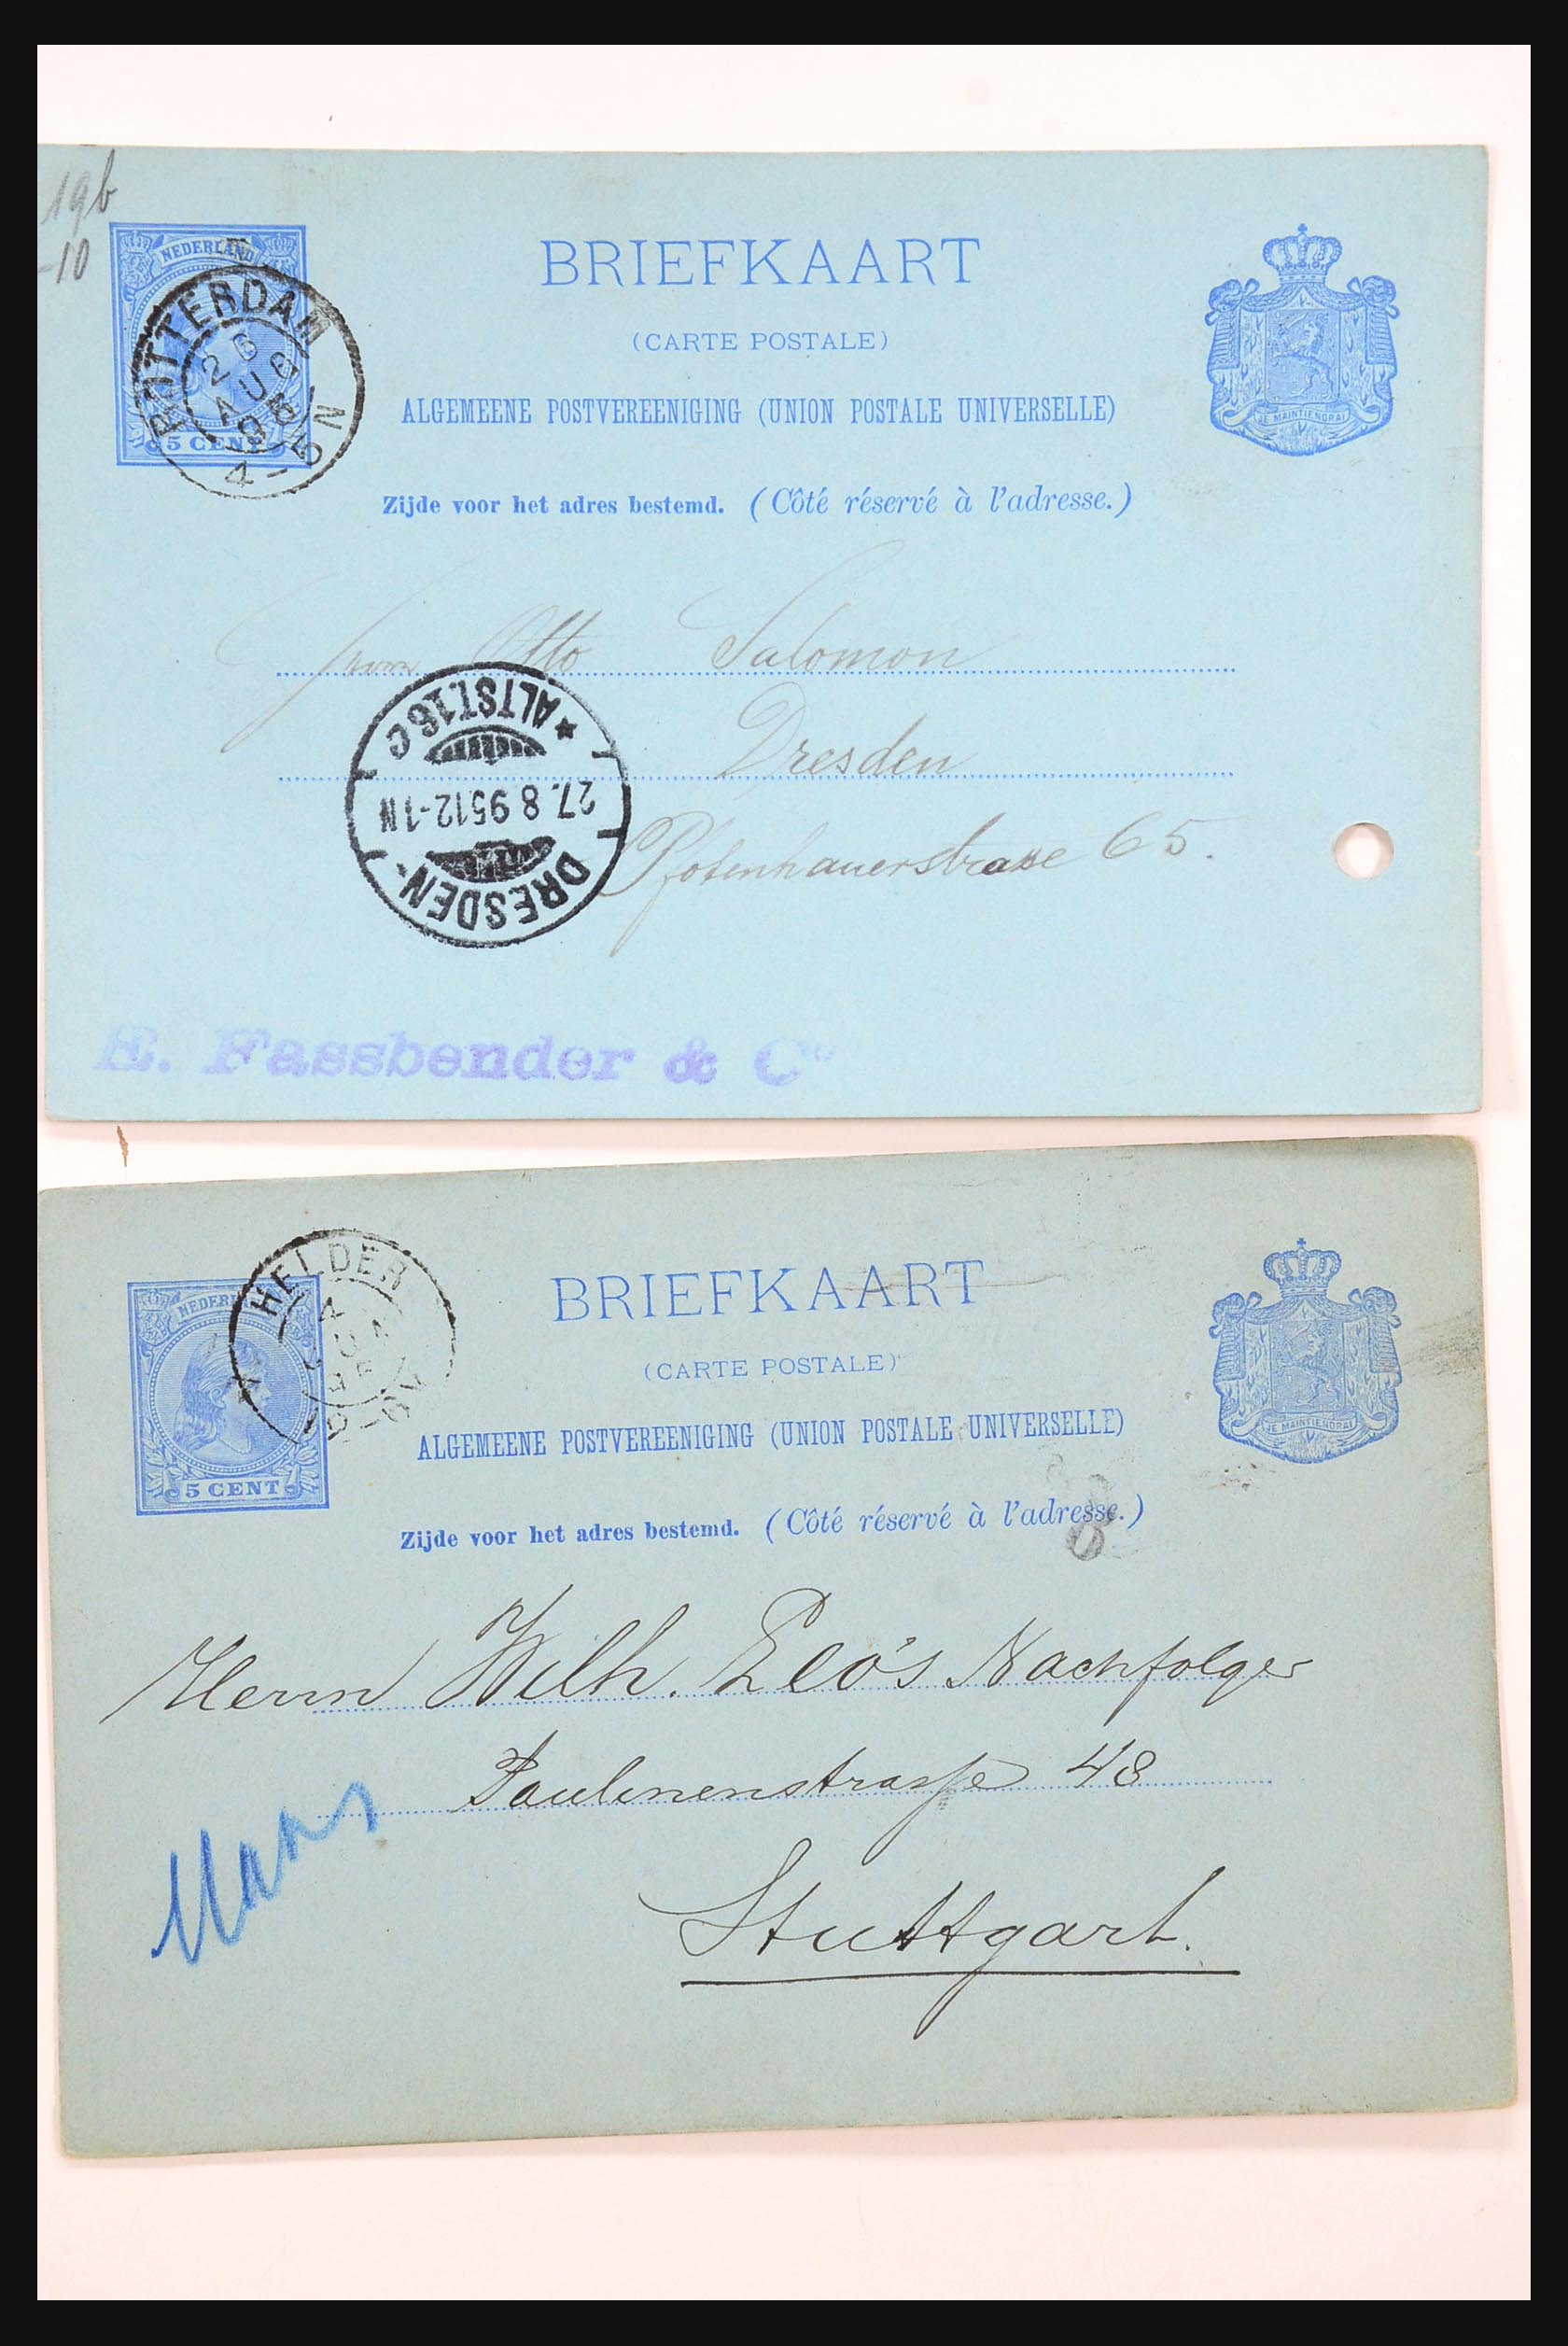 19b
-10
NEDERLAND
5 CENT
ROTTERDAM
26
AUG
95
4-5N
BRIEFKAART
(CARTE POSTALE)
ALGEMEENE POSTVEREENIGING (UNION POSTALE UNIVERSELLE)
Zijde voor het adres bestemd. (Côté réservé à l'adresse.)
JE MAINTIENDRAI
Otto Salomon
Dresden
Pfotenhauerstrasse 65.
DRESDEN-
27. 8 95 12-1N
* ALTST. 16 c
E. Fassbender & Co
NEDERL
5 CENT
HELDER
BRIEFKAART
(CARTE POSTALE)
ALGEMEENE POSTVEREENIGING (UNION POSTALE UNIVERSELLE)
Zijde voor het adres bestemd. (Côté réservé à l'adresse.)
JE MAINTIENDRAI
Herrn Wilh. Leo's Nachfolger
Paulinenstrasse 48
Stuttgart.